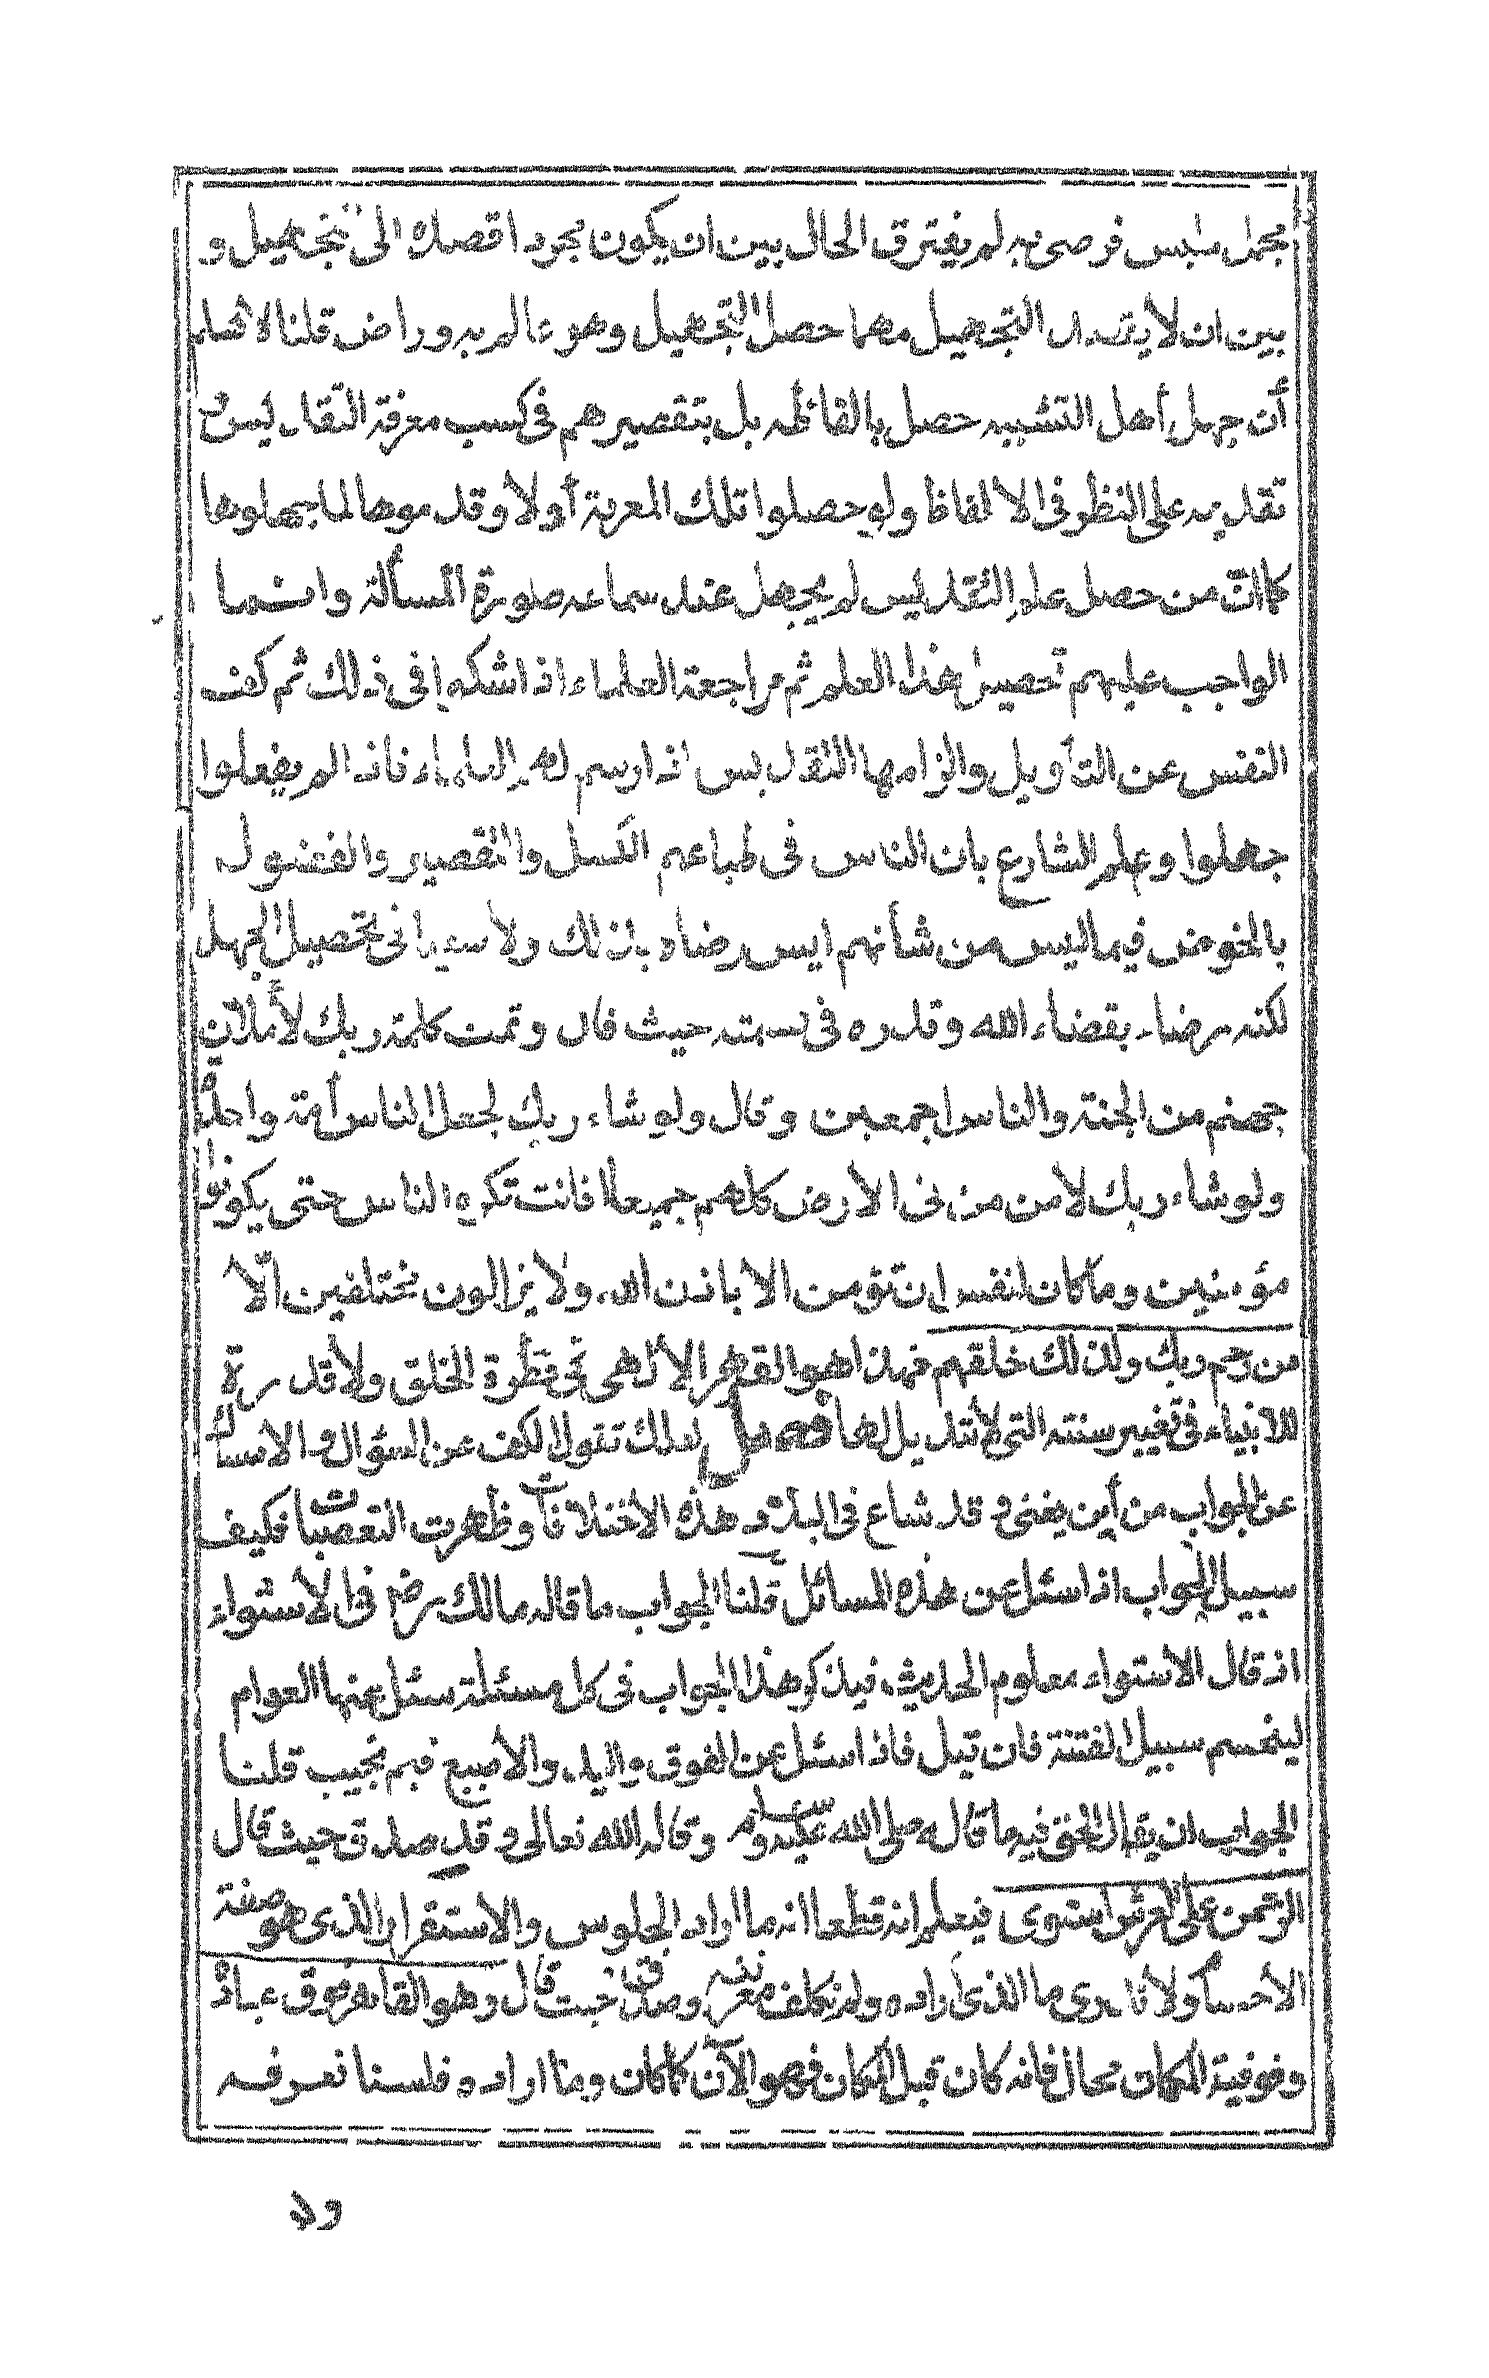 مجمل ملبس فرضى به لم يفترق الحال بين ان يكون مجرد اقصده الى التجهيل و
بين ان لا يقصد التجهيل مهما حصل التجهيل وهو عالم به وراض قلنا لا نسلم
أن جهل أهل التشبيه حصل بالفاظه بل بتقصيرهم فى كسب معرفة التقديس و
تقديمه على النظر فى الالفاظ ولو حصلوا تلك المعرفة أولا وقدموها لما جهلوها
كما ان من حصل علم التقديس لم يجهل عند سماعه صورة المسألة وانما
الواجب عليهم تحصيل هذا العلم ثم مراجعة العلماء اذا شكوا فى ذلك ثم كف
النفس عن التأويل والزامها التقديس اذا رسم لهم العلماء فاذا لم يفعلوا
جهلوا وعلم الشارع بان الناس فى طباعهم الكسل والتقصير والفضول
بالخوض فيما ليس من شأنهم ليس رضاء بذلك ولا سعيا فى تحصيل الجهل
لكنه رضاء بقضاء الله وقدره فى قسمته حيث قال وتمت كلمة ربك لأملأن
جهنم من الجنة والناس اجمعين وقال ولو شاء ربك لجعل الناس أمة واحدة
ولو شاء ربك لآمن من فى الارض كلهم جميعا افانت تكره الناس حتى يكونوا
مؤمنين وما كان لنفس ان تؤمن الا باذن الله ولا يزالون مختلفين الا
من رحم ربك ولذلك خلقهم فهذا هو القهر الالهى فى فطرة الخلق ولا قدرة
للانبياء فى تغيير سنته التى لا تبديل لها فصل لعلك تقول الكف عن السؤال والامساك
عن الجواب من أين يغنى وقد شاع فى البلاد هذه الاختلافات وظهرت التعصبات فكيف
سبيل الجواب اذا سئل عن هذه المسائل قلنا الجواب ما قاله مالك رضى فى الاستواء
اذ قال الاستواء معلوم الحديث فيذكر هذا الجواب فى كل مسئلة سئل عنها العوام
لينحسم سبيل الفتنة فان قيل فاذا سئل عن الفوق واليد والاصبع فبم نجيب قلنا
الجواب ان يقال الحق فيه ما قاله صلى الله عليه وسلم وقاله الله تعالى وقد صدق حيث قال
الرحمن على العرش استوى فيعلم انه قطعا انه ما اراد الجلوس والاستقرار الذى هو صفة
الأجسام ولا ندرى ما الذى اراده ولم نكلف معرفته وصدق حيث قال وهو القاهر فوق عباده
وفوقية المكان محال فانه كان قبل المكان فهو الآن كما كان وما اراده فلسنا نعرفه
ولا